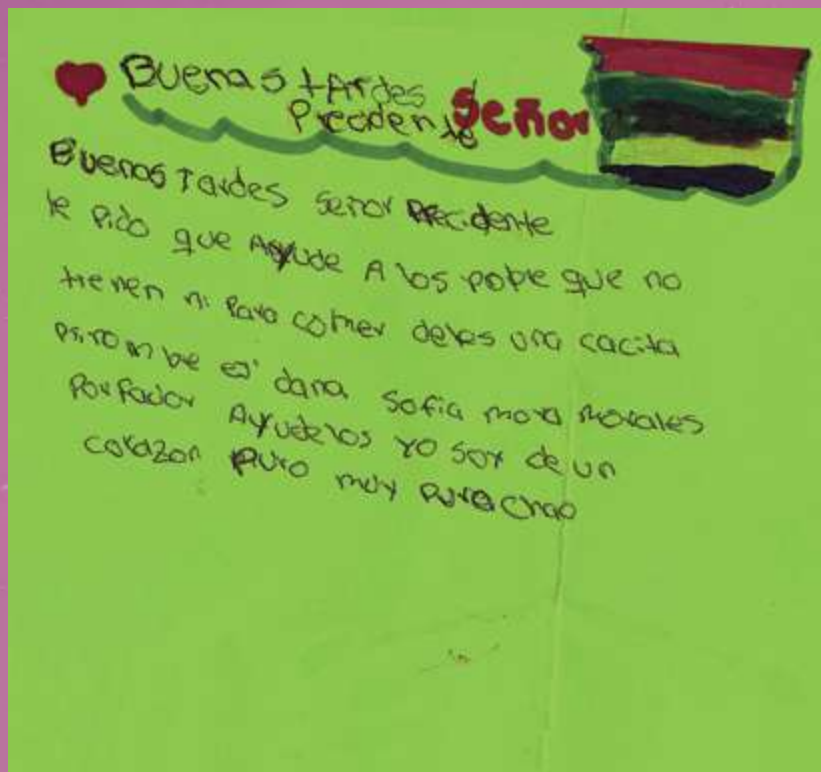 Buenas tardes Señor
Precidente
Buenas Tardes señor Precidente
le Pido que Ayude A los pobre que no
tienen ni Para comer deles una cacita
nombre es dana sofia mora morales
PorFador Ayudelos yo soy de un
corazon Puro muy pura chao